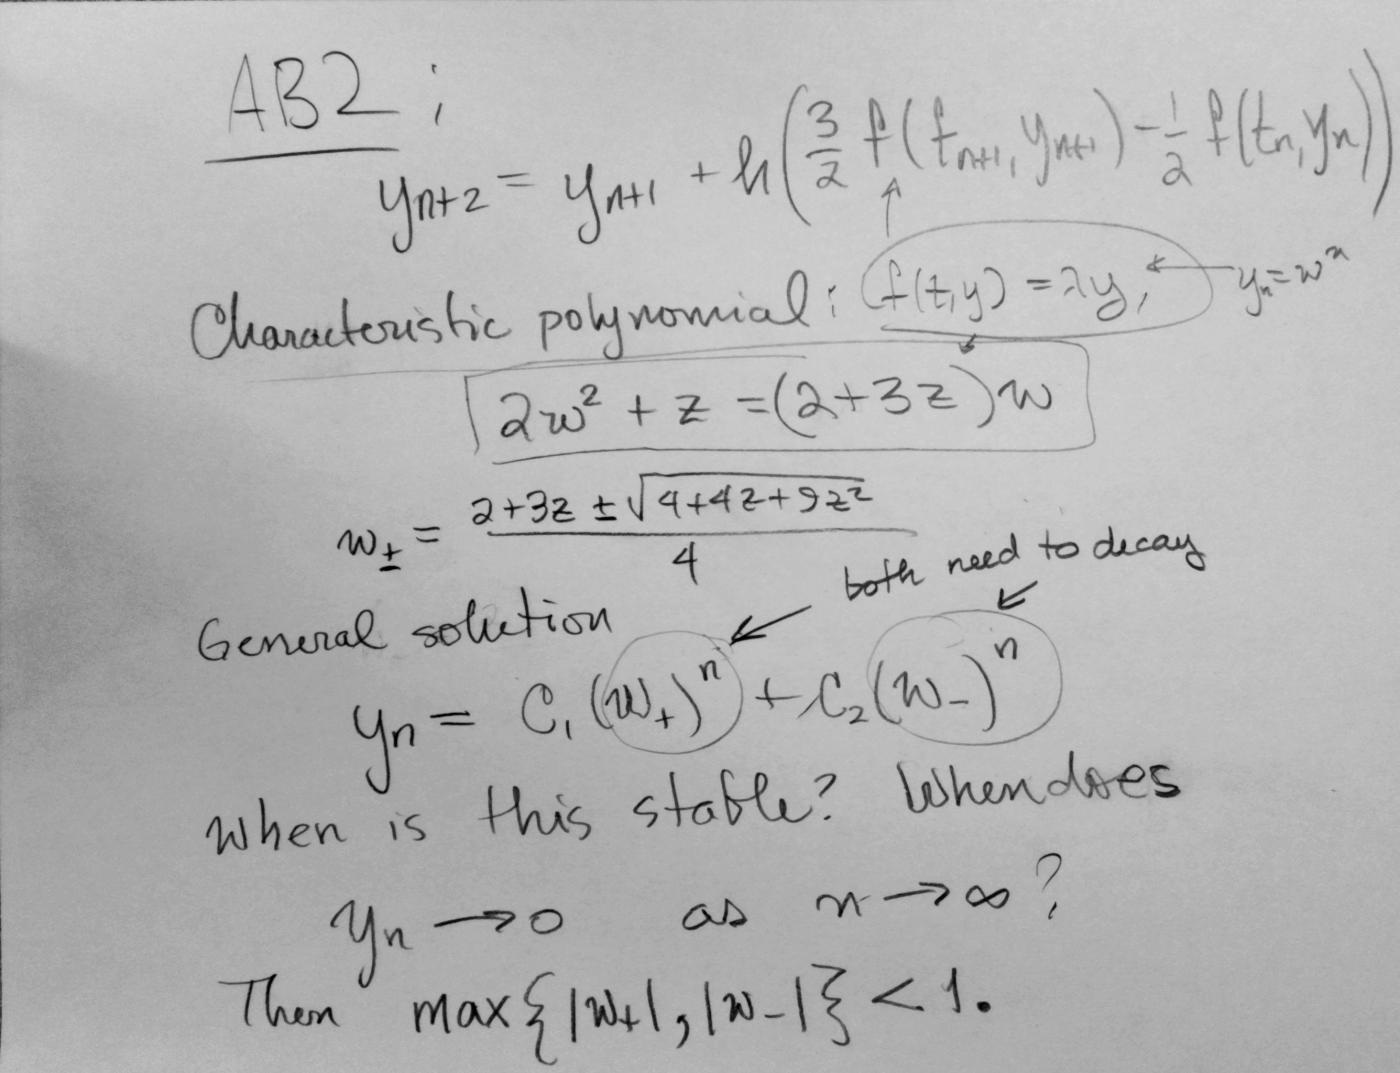 AB2 :
y_{n+2} = y_{n+1} + h(3/2 f(t_{n+1}, y_{n+1}) - 1/2 f(t_n, y_n))
Characteristic polynomial : f(t,y) = λy, ← y_n = w^n
2w² + z = (2+3z)w
w_± = (2+3z ± √(4+4z+9z²))/4
both need to decay
General solution
y_n = C_1 (w_+)^n + C_2 (w_-)^n
When is this stable? When does
y_n → 0 as n → ∞ ?
Then max{|w_+|, |w_-|} < 1.